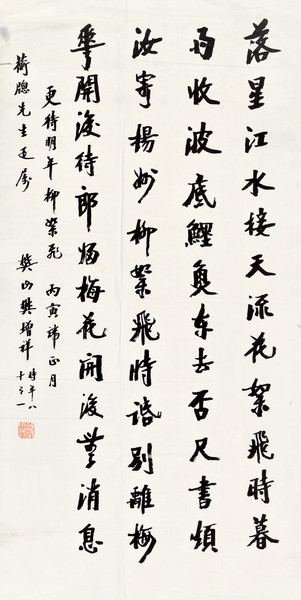 落星江水接天流花絮飛時暮
雨收波底鯉魚東去否尺書煩
汝寄楊州柳絮飛時話別離梅
華開後待郎歸梅花開後無消息
更待明年柳絮飛 丙寅端正月
聰先生正屬 樊山樊增祥時年八
十又一